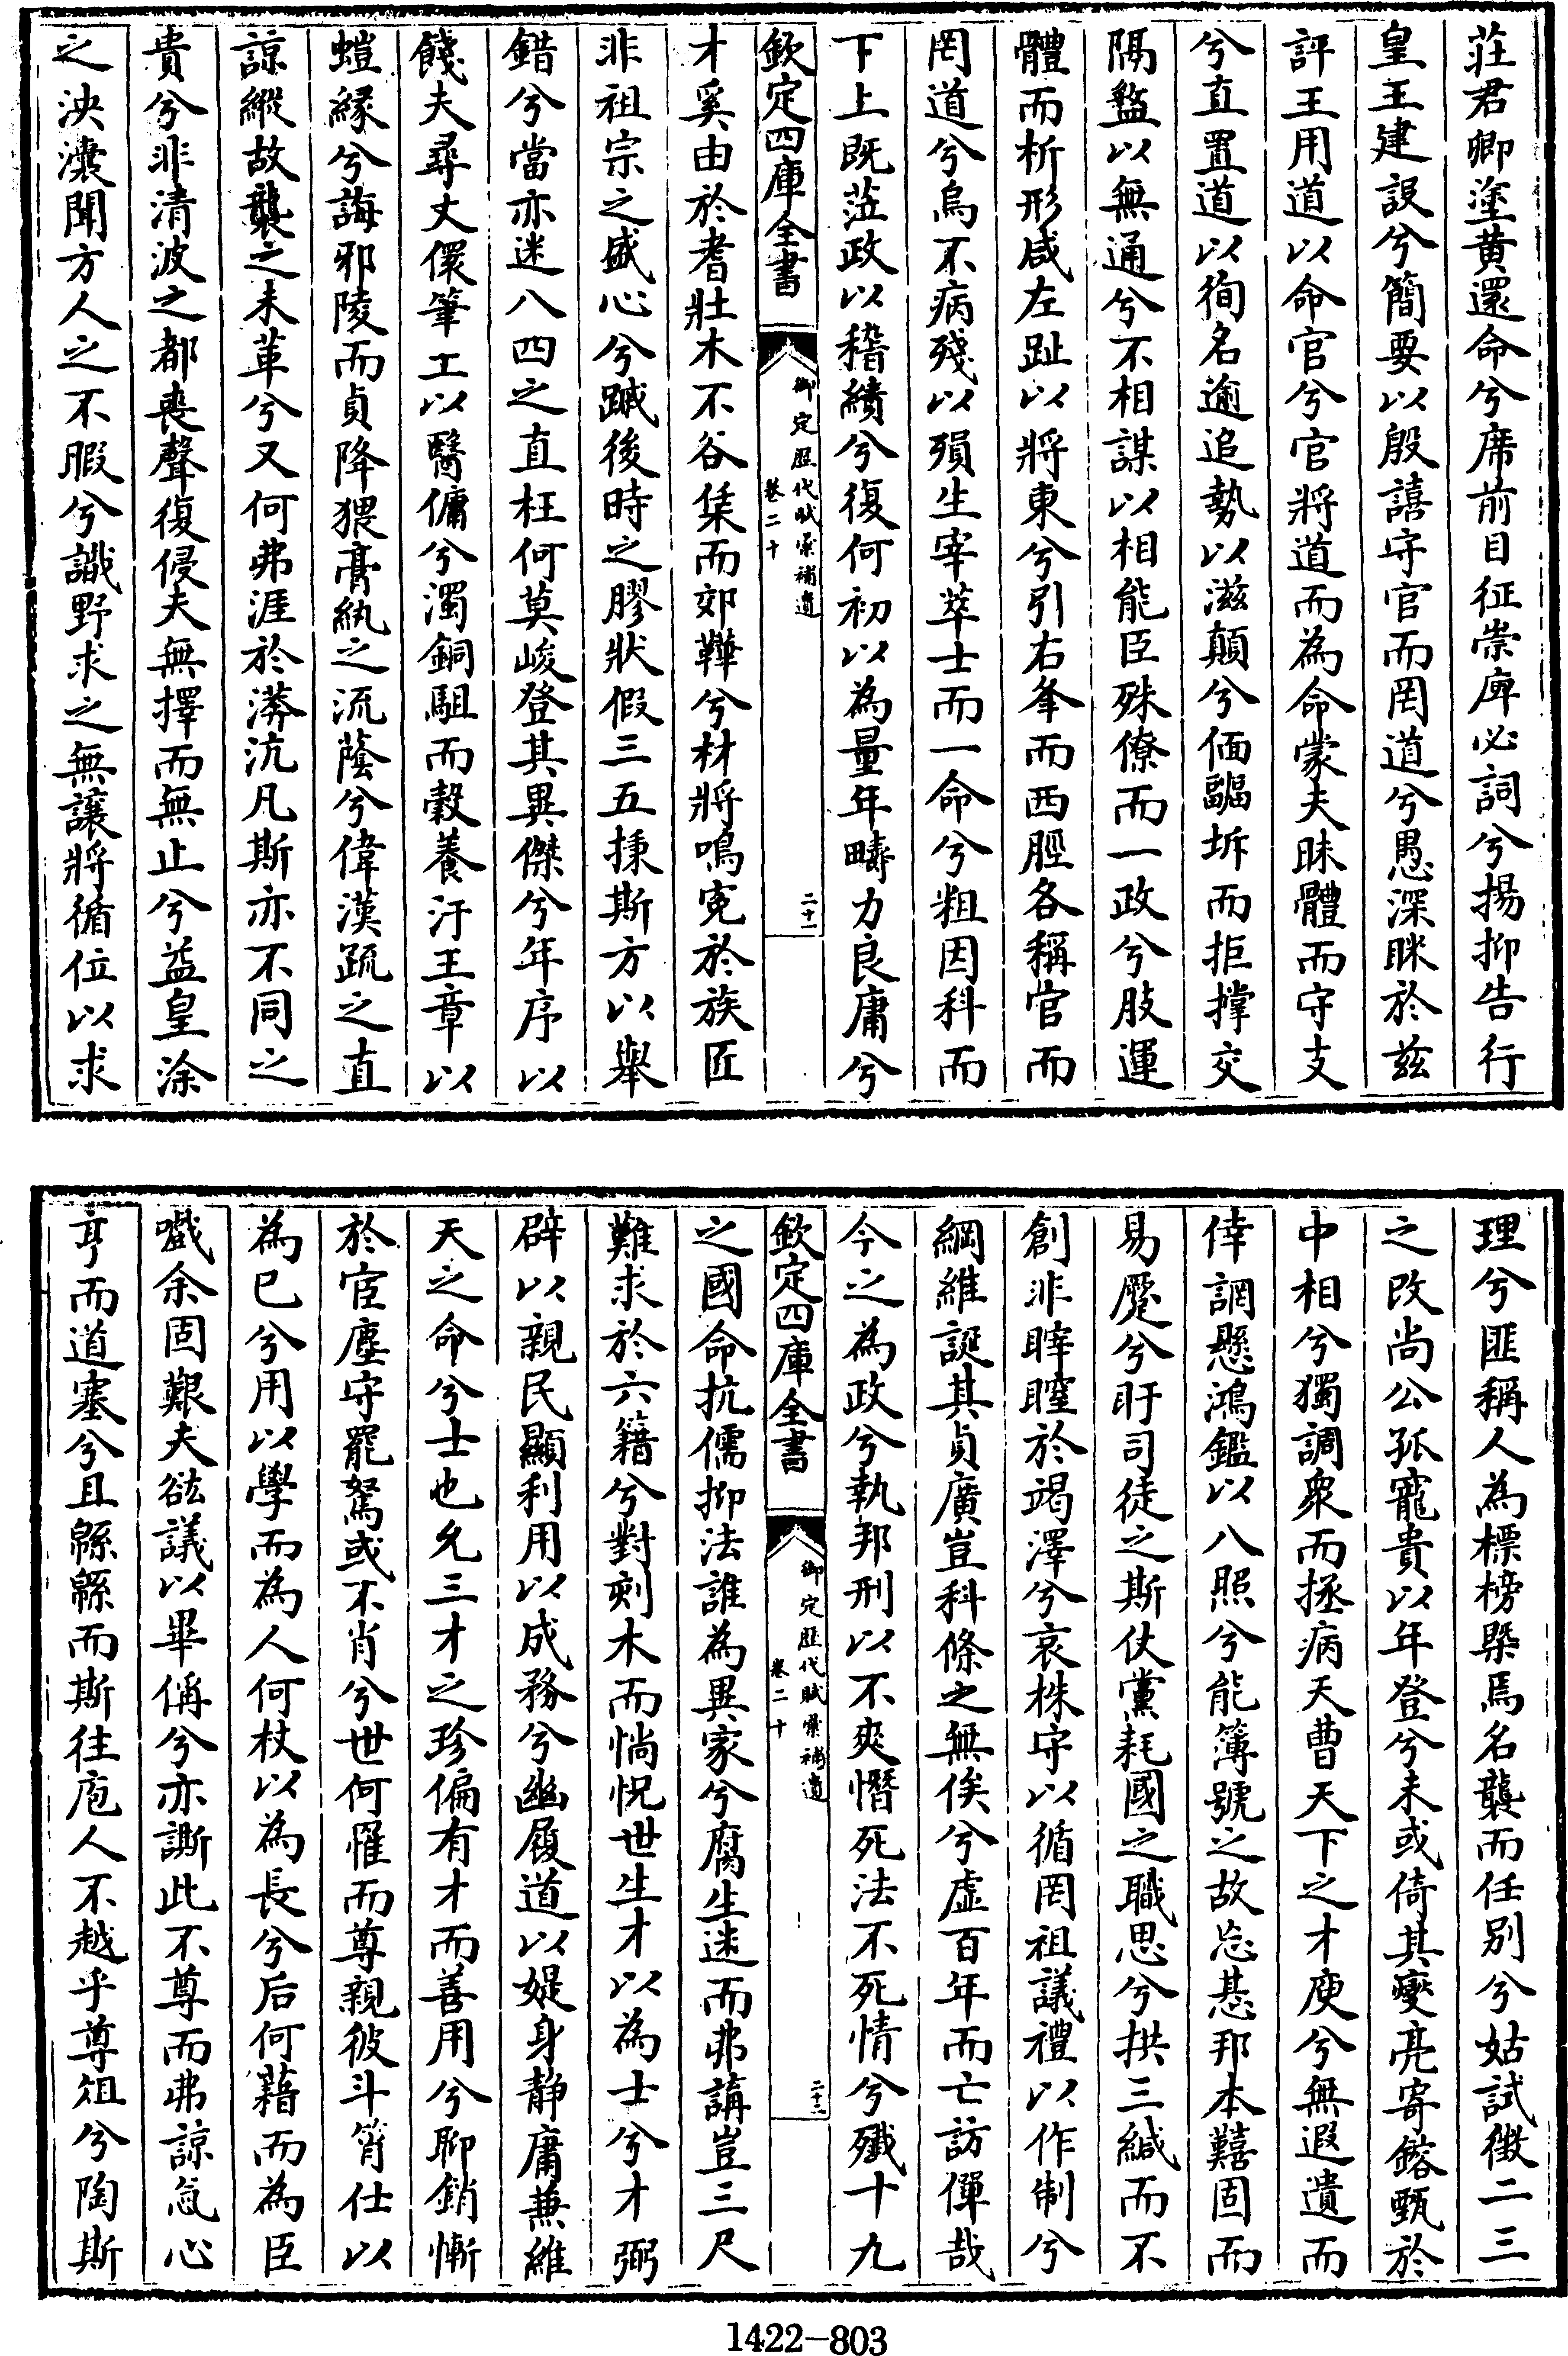 莊君卿塗黄還命兮席前目征崇庳必詞兮揚抑告行
皇王建設兮簡要以殷譆守官而罔道兮愚深眯於兹
評王用道以命官兮官將道而為命蒙夫昧體而守支
兮直置道以徇名逾追勢以滋顛兮偭副坼而拒撑交
隔盭以無通兮不相謀以相能臣殊僚而一政兮肢運
體而析形咸左趾以將東兮引右夆而西脛各稱官而
罔道兮烏不病殘以殞生宰萃士而一命兮粗因科而
下上既蒞政以稽績兮復何初以為量年疇力良庸兮
欽定四庫全書
御定歴代賦彙補遺
卷二十
二十一
才奚由於耆壯木不谷栠而郊鞾兮材將鳴寃於族匠
非祖宗之盛心兮蹴後時之膠狀假三五揀斯方以舉
錯兮當亦迷八四之直枉何莫峻登其異傑兮年序以
餞夫尋丈儇筆工以醫傭兮濁銅駔而穀養汙王章以
螘緣兮誨邪陵而貞降猥膏紈之流蔭兮偉漢疏之直
諒縱故襲之未革兮又何弗涯於漭沆凡斯亦不同之
貴兮非清波之都喪聲復侵夫無擇而無止兮益皇涂
之泱瀼聞方人之不暇兮識野求之無讓將循位以求
理兮匪稱人為標榜槩焉名襲而任别兮姑試徵二三
之改尚公孤寵貴以年登兮未或倚其燮亮寄鎔甄於
中相兮獨調衆而拯病天曹天下之才庾兮無遐遺而
倖調懸鴻鑑以八照兮能簿號之故忘惎邦本囏固而
易蹷兮盱司徒之斯仗黨耗國之職思兮拱三緘而不
創非睟瞠於竭澤兮哀株守以循罔祖議禮以作制兮
綱維誕其貞廣豈科條之無俟兮虚百年而亡訪僤哉
今之為政兮執邦刑以不爽憯死法不死情兮殲十九
欽定四庫全書
御定歴代賦彙補遺
卷二十
二十二
之國命抗儒抑法誰為異家兮腐生迷而弗講豈三尺
難求於六籍兮對刻木而惝怳世生才以為士兮才弼
辟以親民顯利用以成務兮幽履道以媞身静庸兼維
天之命兮士也允三才之珍偏有才而善用兮聊銷慚
於宦塵守罷駑或不肖兮世何懼而尊親彼斗筲仕以
為已兮用以學而為人何杖以為長兮后何藉而為臣
嚱余固艱夫谹議以畢偁兮亦譭此不尊而弗諒氣心
亨而道塞兮且緜緜而斯往庖人不越乎尊俎兮陶斯
1422-803